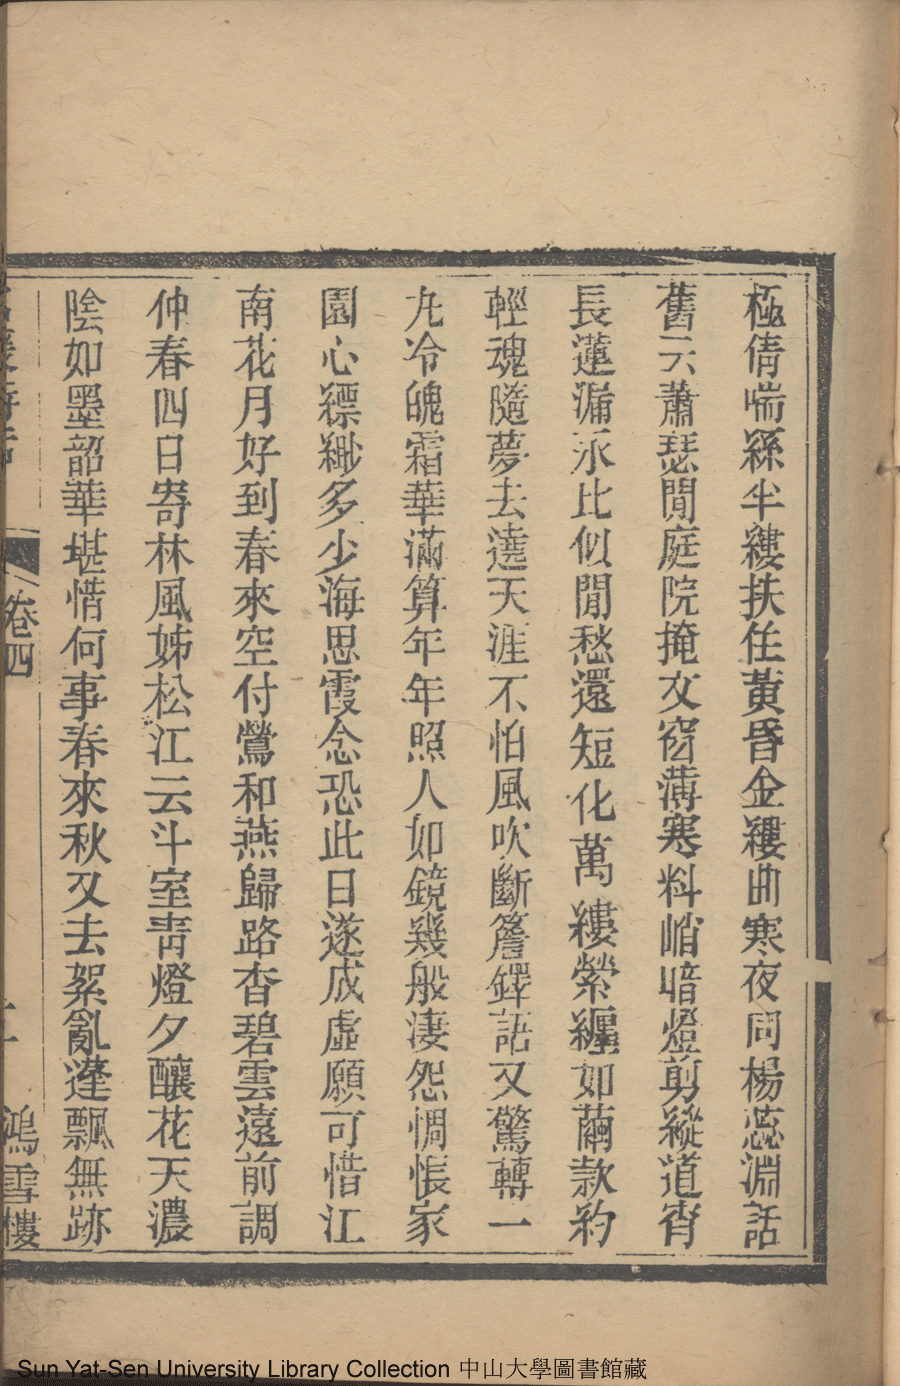 極倩喘絲半縷扶住黃昏金縷曲寒夜同楊蕊淵話
舊云蕭瑟閒庭院掩文窗薄寒料峭暗燈剪縱道宵
長蓮漏永比似閒愁還短化萬縷縈纏如繭款約
輕魂隨夢去遶天涯不怕風吹斷簷鐸語又驚轉一
丸冷魄霜華滿算年年照人如鏡幾般淒怨惆悵家
園心縹緲多少海思霞念恐此日遂成虛願可惜江
南花月好到春來空付鶯和燕歸路杳碧雲遠前調
仲春四日寄林風姊松江云斗室青燈夕釀花天濃
陰如墨韶華堪惜何事春來秋又去絮亂蓬飄無跡
卷四
鴻雪樓
Sun Yat-Sen University Library Collection 中山大學圖書館藏